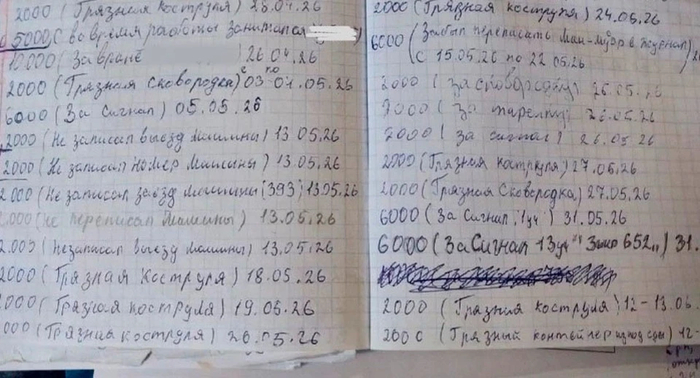 2000 (Грязная кострюля) 28.04.26
5000 (Во время работы занимался
10.000 (За враньё 26.04.26
2000 (Грязная Сковородка) с 03 по 01.05.26
6000 (За Сигнал) 05.05.26
2000 (Не записал выезд машины) 13.05.26
2000 (Не записал номер Машины) 13.05.26
2000 (Не записал заезд машины (393) 13.05.26
2.000 (не переписал Машины) 13.05.26
2.000 (Незаписал выезд машины) 13.05.26
2000 (Грязная Кострюля) 18.05.26
2000 (Грязная кострюля) 19.05.26
2000 (Грязная кострюля) 20.05.26
2000 (Грязная кострюля) 24.05.26
6000 (Забыл переписать в журнал)
с 15.05.26 по 22.05.26
2000 (За сковородку) 26.05.26
2000 (за тарелку) 26.05.26
2000 (за сигнал) 26.05.26
2000 (Грязная кострюля) 27.05.26
2000 (Грязная Сковородка) 27.05.26
6000 (За Сигнал, 1уч) 31.05.26
6000 (За Сигнал 13уч " 652") 31.
2000 (Грязная кострюля) 12-13.06
2000 (Грязный контейнер из под еды) 12-